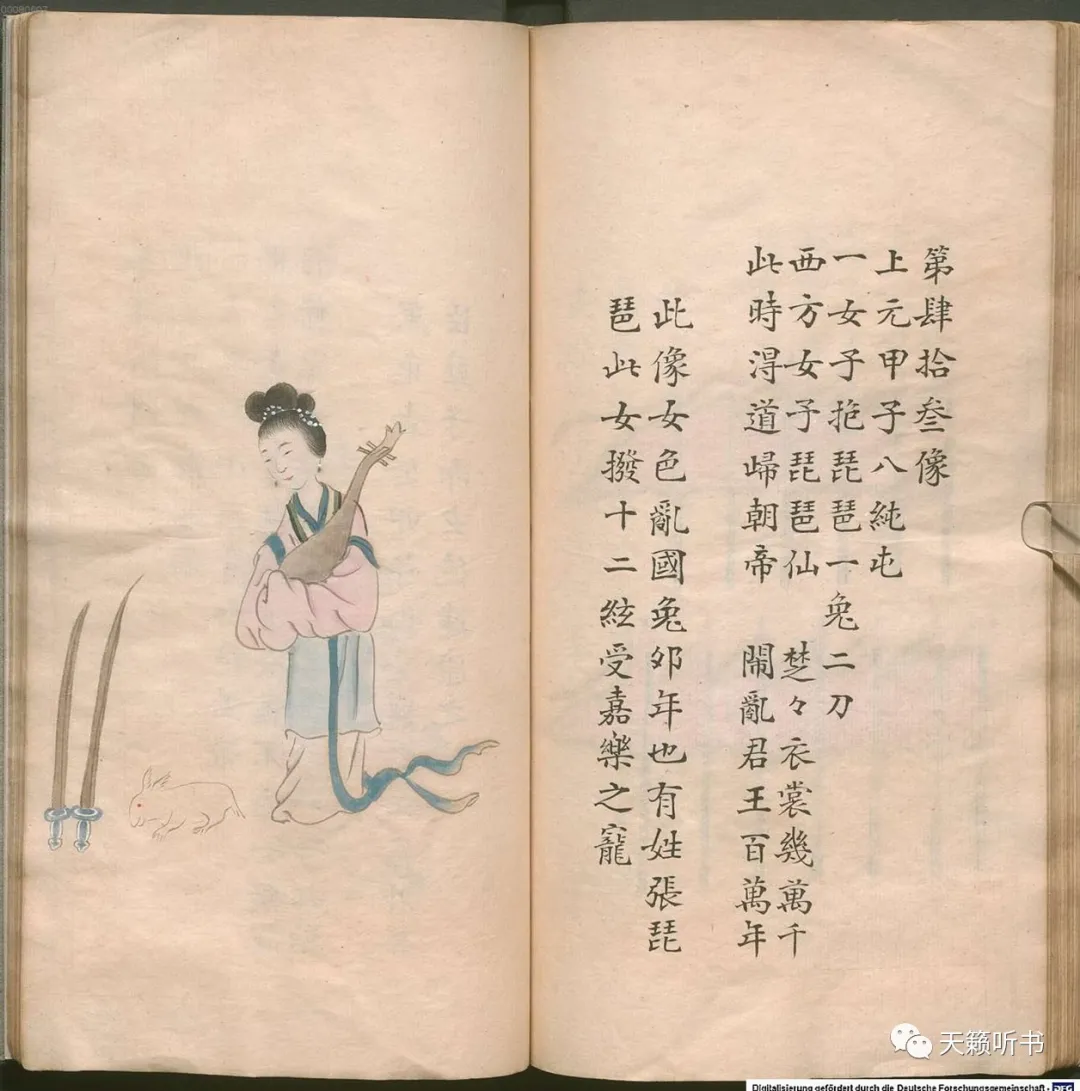 第肆拾叁像
上元甲子八純屯
一女子抱琵琶一兔二刀
西方女子琵琶仙 楚々衣裳幾萬千
此時淂道歸朝帝 鬧亂君王百萬年
此像女色亂國兔卯年也有姓張琵
琶此女撥十二絃受嘉樂之寵
天籁听书
Digitalisierung gefördert durch die Deutsche Forschungsgemeinschaft - DFG